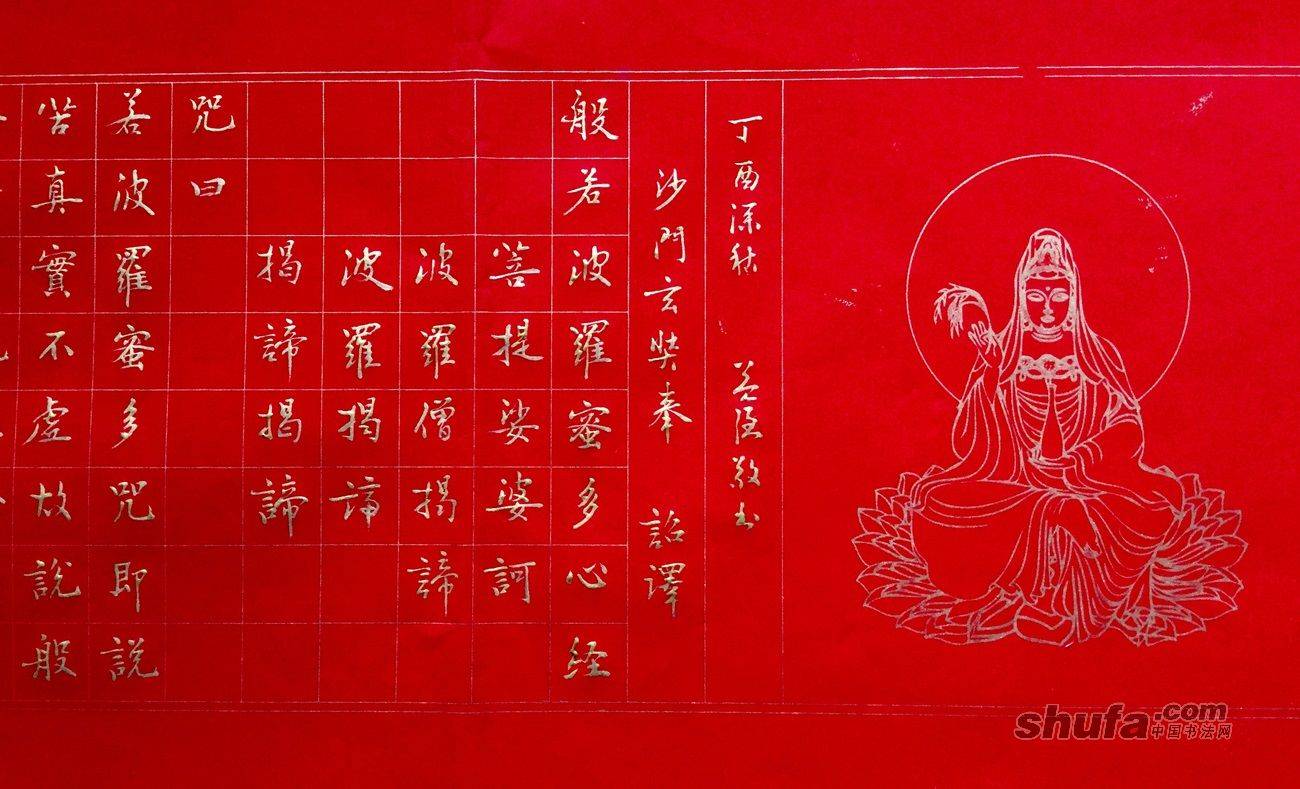 苦真實不虛故說般
若波羅蜜多咒即說
咒曰
揭諦揭諦
波羅揭諦
波羅僧揭諦
菩提娑婆訶
般若波羅蜜多心経
沙門玄奘奉 詔譯
丁酉深秋 敬書
shufa.com
中国书法网